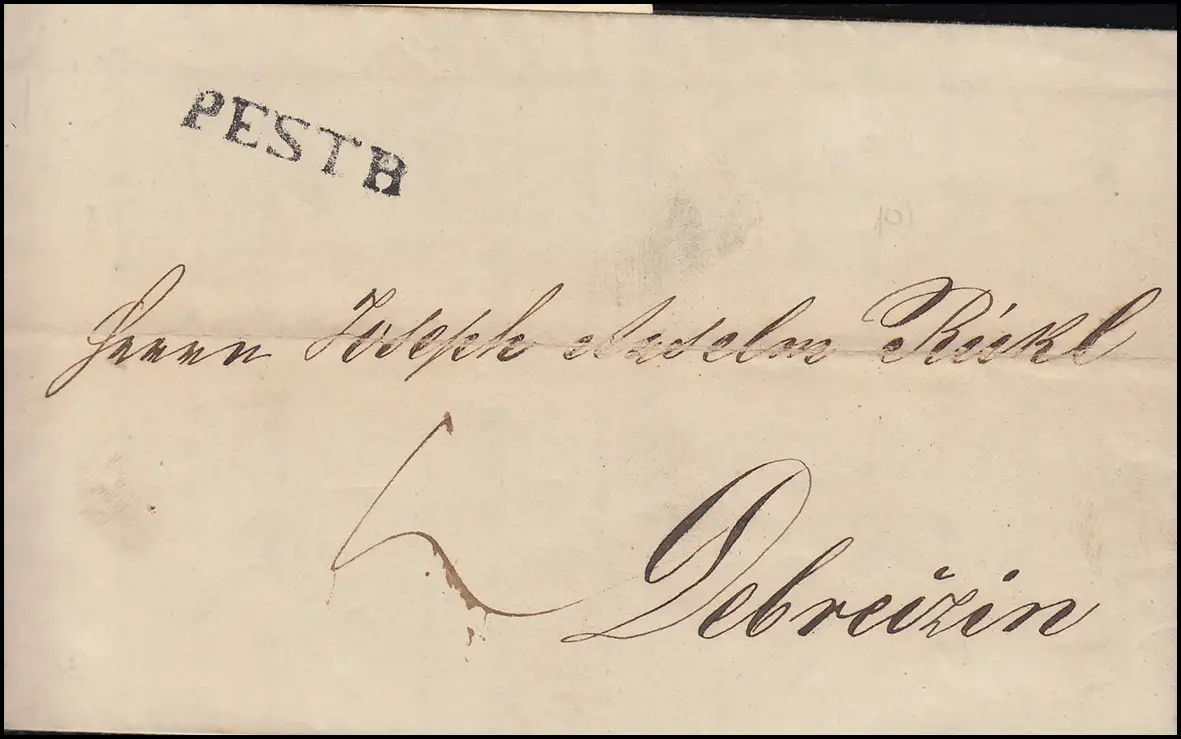 PESTH
Herrn Joseph Anselm Rickl
Debreizin